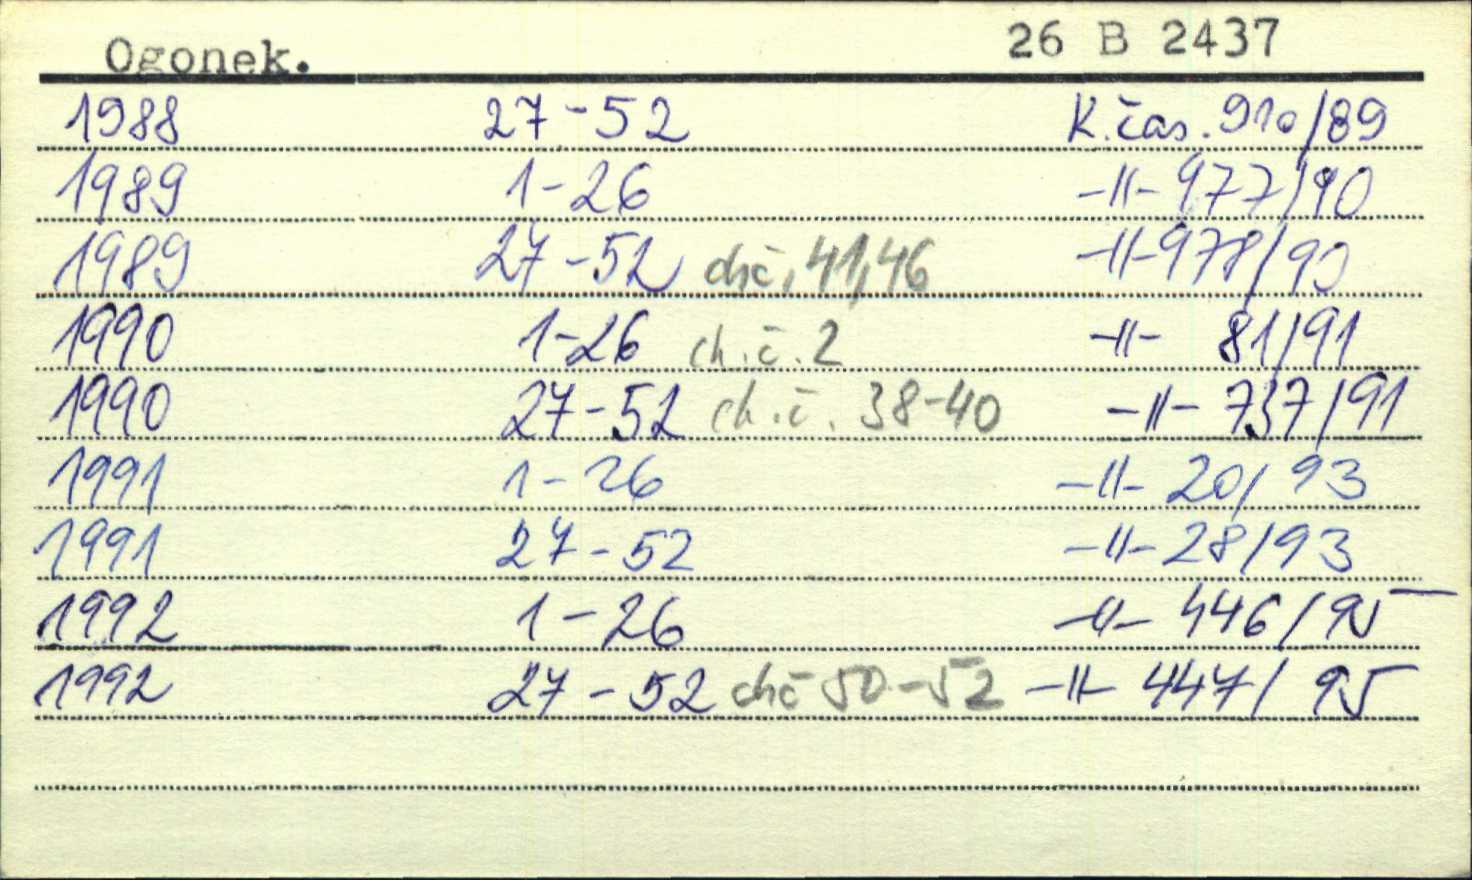 Ogonek. 26 B 2437
1988 27-52 K.čas. 910/89
1989 1-26 -II- 977/90
1989 27-52 chč, 41,46 -II- 978/90
1990 1-26 ch.č.2 -II- 81/91
1990 27-52 ch.č. 38-40 -II- 737/91
1991 1-26 -II- 20/93
1991 27-52 -II- 28/93
1992 1-26 -II- 446/95
1992 27-52 chč 50-52 -II- 447/95